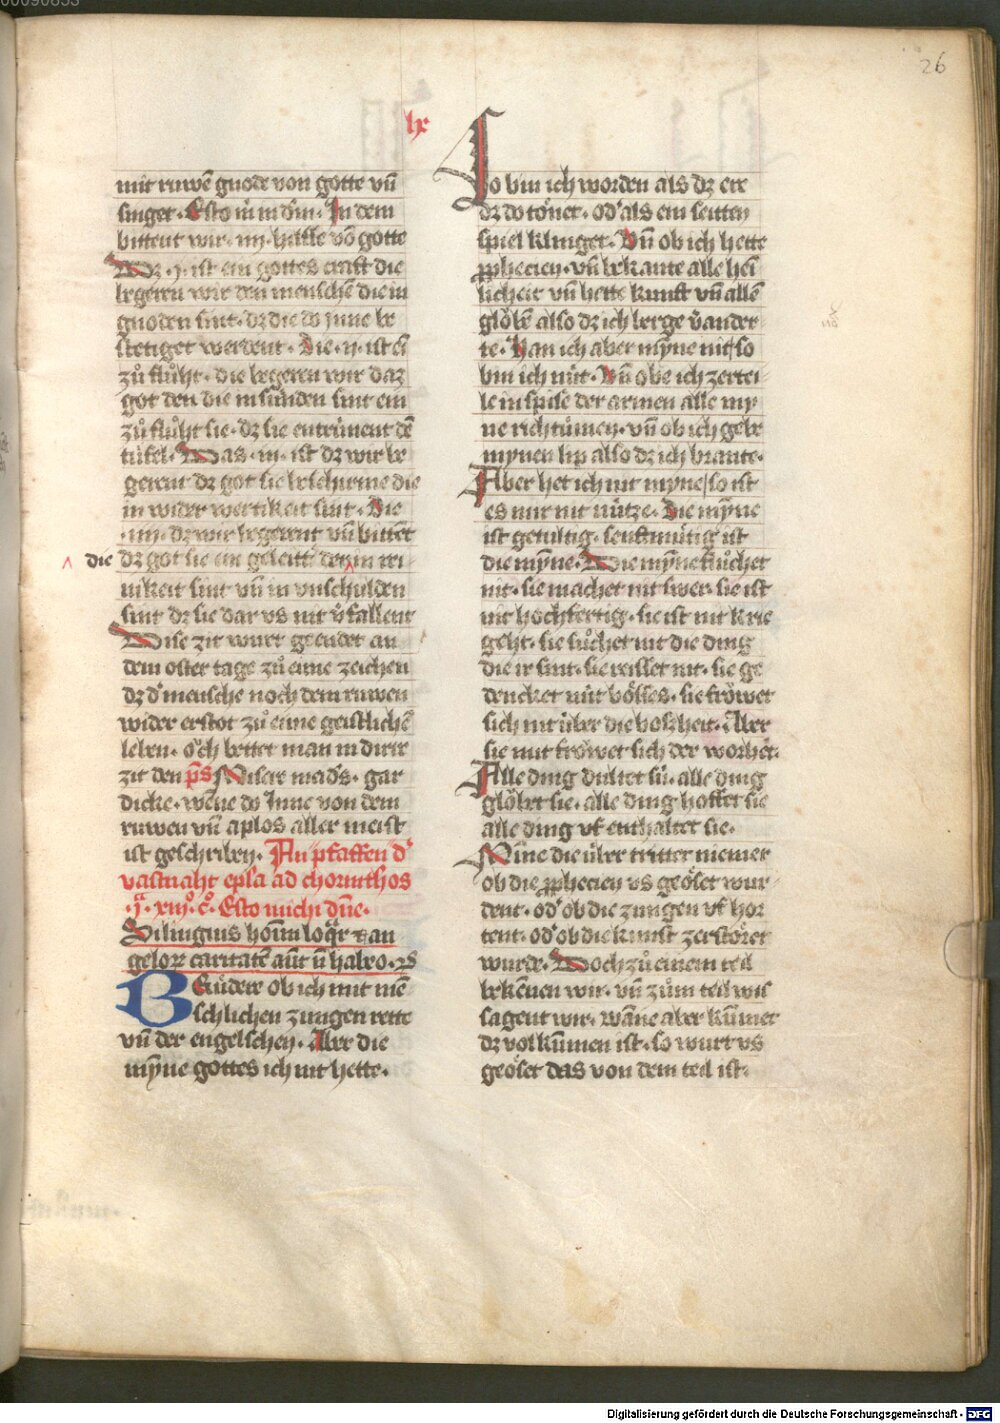 00090853
26
lx
mit ruwē gnode von gotte vn̄
singet · Esto m̄ in dm̄ · In dem
bittent wir · iiij · hā̈ffe vō gotte
Dz · j · ist ein gottes craft die
begeren wir den menschē die in
gnoden sint · dz die do inne be
stetiget werdent · Die · ij · ist ei
zů flůht · die begeren wir daz
got den die in sünden sint ein
zů flůht sie · dz sie entrinnent dē
tüfel · Das · iii · ist dz wir be
gerent dz got sie beschirme die
in wider wertikeit sint · Die
· iiij · dz wir begerent vn̄ bittēt
die dz got sie ein geleitt den in rei
nikeit sint vn̄ in vnschulden
sint dz sie dar vs nit v̓fallent
Dise zit wurt geendet an
dem oster tage zů eime zeichen
dz d̓ mensche noch dem ruwen
wider erstot zů eime geistlichē
leben · öch bettet man in dirre
zit den p̄s Miserere mad̓s · gar
dicke · wēne do Inne von dem
ruwen vn̄ aplos aller meist
ist geschriben · An pfaffen d̓
vastnaht epl̄a ad chorinthos
· j · xiij · c° · Esto michi dn̄e ·
Si linguis hoīm loq̄r ⁊ an
geloꝝ caritatē aūt n̄ habeo · ꝛs
Brůdere ob ich mit mē
schlichen zungen rette
vn̄ der engelschen · Aber die
mỹne gottes ich nit hette ·
So bin ich worden als dz ere
dz do tönet · od̓ als ein seitten
spiel klinget · Vn̄ ob ich hette
ꝓphecien · vn̄ bekante alle hei
licheit vn̄ hette kunst vn̄ allē
glöbē also dz ich berge v̓ander
te · Han ich aber mỹne nit so
bin ich nüt · Vn̄ obe ich zertei
le in spise der armen alle my
ne richtümen · vn̄ ob ich gebe
mynen lip also dz ich brante ·
Aber het ich nit myne so ist
es mir nit nütze · Die mỹne
ist gedultig · senftmütig ist
die mỹne · Die mỹne flůchet
nit · sie machet nit swer · sie ist
nit hochfertig · sie ist nit krie
geht · sie sůchet nit die ding
die ir sint · sie reisset nit · sie ge
dencket nüt bösses · sie fröwet
sich nit über die bosheit · Aber
sie mit fröwet sich der worheit ·
Alle ding duldet sü · alle ding
glöbet sie · alle ding hoffet sie
alle ding vf enthaltet sie ·
Mīne die über trittet niemer
ob die ꝓphecien vs geöset wur
dent · od̓ ob die zungen vf hor
tent · od̓ ob die kunst zerstöret
wurde · Doch zů einem teil
bekēnen wir · vn̄ zům teil wis
sagent wir · wāne aber kümet
dz volkümen ist · so wurt vs
geöset das von dem teil ist ·
Digitalisierung gefördert durch die Deutsche Forschungsgemeinschaft - DFG